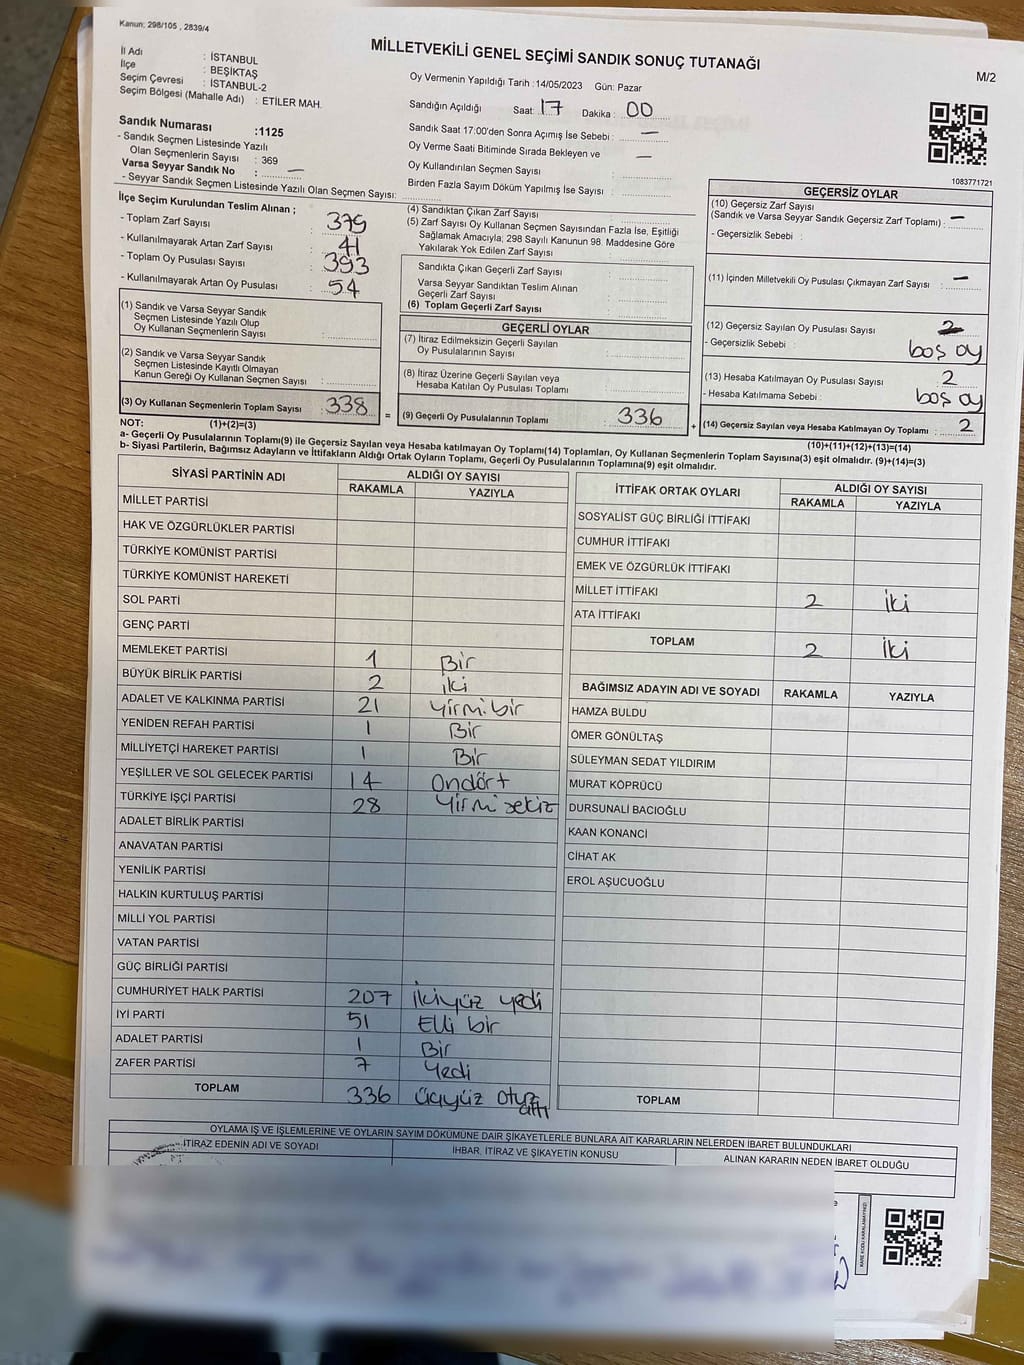 Kanun; 298/105 , 2839/4
MİLLETVEKİLİ GENEL SEÇİMİ SANDIK SONUÇ TUTANAĞI
M/2
İl Adı : İSTANBUL
İlçe : BEŞİKTAŞ
Seçim Çevresi : İSTANBUL-2
Seçim Bölgesi (Mahalle Adı) : ETİLER MAH.
Oy Vermenin Yapıldığı Tarih : 14/05/2023 Gün: Pazar
Sandığın Açıldığı Saat: 17 Dakika : 00
Sandık Saat 17:00'den Sonra Açımış İse Sebebi : —
Oy Verme Saati Bitiminde Sırada Bekleyen ve —
Oy Kullandırılan Seçmen Sayısı :
Birden Fazla Sayım Döküm Yapılmış İse Sayısı :
Sandık Numarası :1125
- Sandık Seçmen Listesinde Yazılı
Olan Seçmenlerin Sayısı : 369
Varsa Seyyar Sandık No : —
- Seyyar Sandık Seçmen Listesinde Yazılı Olan Seçmen Sayısı:
1083771721
İlçe Seçim Kurulundan Teslim Alınan ;
- Toplam Zarf Sayısı : 379
- Kullanılmayarak Artan Zarf Sayısı : 41
- Toplam Oy Pusulası Sayısı : 393
- Kullanılmayarak Artan Oy Pusulası : 54
(1) Sandık ve Varsa Seyyar Sandık
Seçmen Listesinde Yazılı Olup
Oy Kullanan Seçmenlerin Sayısı :
(2) Sandık ve Varsa Seyyar Sandık
Seçmen Listesinde Kayıtlı Olmayan
Kanun Gereği Oy Kullanan Seçmen Sayısı :
(3) Oy Kullanan Seçmenlerin Toplam Sayısı : 338 =
(4) Sandıktan Çıkan Zarf Sayısı :
(5) Zarf Sayısı Oy Kullanan Seçmen Sayısından Fazla İse, Eşitliği
Sağlamak Amacıyla; 298 Sayılı Kanunun 98. Maddesine Göre
Yakılarak Yok Edilen Zarf Sayısı :
Sandıkta Çıkan Geçerli Zarf Sayısı :
Varsa Seyyar Sandıktan Teslim Alınan
Geçerli Zarf Sayısı :
(6) Toplam Geçerli Zarf Sayısı :
GEÇERLİ OYLAR
(7) İtiraz Edilmeksizin Geçerli Sayılan
Oy Pusulalarının Sayısı :
(8) İtiraz Üzerine Geçerli Sayılan veya
Hesaba Katılan Oy Pusulası Toplamı :
(9) Geçerli Oy Pusulalarının Toplamı : 336 +
GEÇERSİZ OYLAR
(10) Geçersiz Zarf Sayısı
(Sandık ve Varsa Seyyar Sandık Geçersiz Zarf Toplamı) : —
- Geçersizlik Sebebi :
(11) İçinden Milletvekili Oy Pusulası Çıkmayan Zarf Sayısı : —
(12) Geçersiz Sayılan Oy Pusulası Sayısı : 2
- Geçersizlik Sebebi : boş oy
(13) Hesaba Katılmayan Oy Pusulası Sayısı : 2
- Hesaba Katılmama Sebebi : boş oy
(14) Geçersiz Sayılan veya Hesaba Katılmayan Oy Toplamı : 2
NOT: (1)+(2)=(3)
(10)+(11)+(12)+(13)=(14)
a- Geçerli Oy Pusulalarının Toplamı(9) ile Geçersiz Sayılan veya Hesaba katılmayan Oy Toplamı(14) Toplamları, Oy Kullanan Seçmenlerin Toplam Sayısına(3) eşit olmalıdır. (9)+(14)=(3)
b- Siyasi Partilerin, Bağımsız Adayların ve İttifakların Aldığı Ortak Oyların Toplamı, Geçerli Oy Pusulalarının Toplamına(9) eşit olmalıdır.
SİYASİ PARTİNİN ADI ALDIĞI OY SAYISI
RAKAMLA YAZIYLA
MİLLET PARTİSİ
HAK VE ÖZGÜRLÜKLER PARTİSİ
TÜRKİYE KOMÜNİST PARTİSİ
TÜRKİYE KOMÜNİST HAREKETİ
SOL PARTİ
GENÇ PARTİ
MEMLEKET PARTİSİ 1 Bir
BÜYÜK BİRLİK PARTİSİ 2 iki
ADALET VE KALKINMA PARTİSİ 21 Yirmi bir
YENİDEN REFAH PARTİSİ 1 Bir
MİLLİYETÇİ HAREKET PARTİSİ 1 Bir
YEŞİLLER VE SOL GELECEK PARTİSİ 14 Ondört
TÜRKİYE İŞÇİ PARTİSİ 28 Yirmi sekiz
ADALET BİRLİK PARTİSİ
ANAVATAN PARTİSİ
YENİLİK PARTİSİ
HALKIN KURTULUŞ PARTİSİ
MİLLİ YOL PARTİSİ
VATAN PARTİSİ
GÜÇ BİRLİĞİ PARTİSİ
CUMHURİYET HALK PARTİSİ 207 İkiyüz yedi
İYİ PARTİ 51 Elli bir
ADALET PARTİSİ 1 Bir
ZAFER PARTİSİ 7 Yedi
TOPLAM 336 Üçyüz otuz altı
İTTİFAK ORTAK OYLARI ALDIĞI OY SAYISI
RAKAMLA YAZIYLA
SOSYALİST GÜÇ BİRLİĞİ İTTİFAKI
CUMHUR İTTİFAKI
EMEK VE ÖZGÜRLÜK İTTİFAKI
MİLLET İTTİFAKI 2 İki
ATA İTTİFAKI
TOPLAM 2 İki
BAĞIMSIZ ADAYIN ADI VE SOYADI RAKAMLA YAZIYLA
HAMZA BULDU
ÖMER GÖNÜLTAŞ
SÜLEYMAN SEDAT YILDIRIM
MURAT KÖPRÜCÜ
DURSUNALİ BACIOĞLU
KAAN KONANCİ
CİHAT AK
EROL AŞUCUOĞLU
TOPLAM
OYLAMA İŞ VE İŞLEMLERİNE VE OYLARIN SAYIM DÖKÜMÜNE DAİR ŞİKAYETLERLE BUNLARA AİT KARARLARIN NELERDEN İBARET BULUNDUKLARI
İTİRAZ EDENİN ADI VE SOYADI İHBAR, İTİRAZ VE ŞİKAYETİN KONUSU ALINAN KARARIN NEDEN İBARET OLDUĞU
KARE KODU KARALAMAYINIZ!